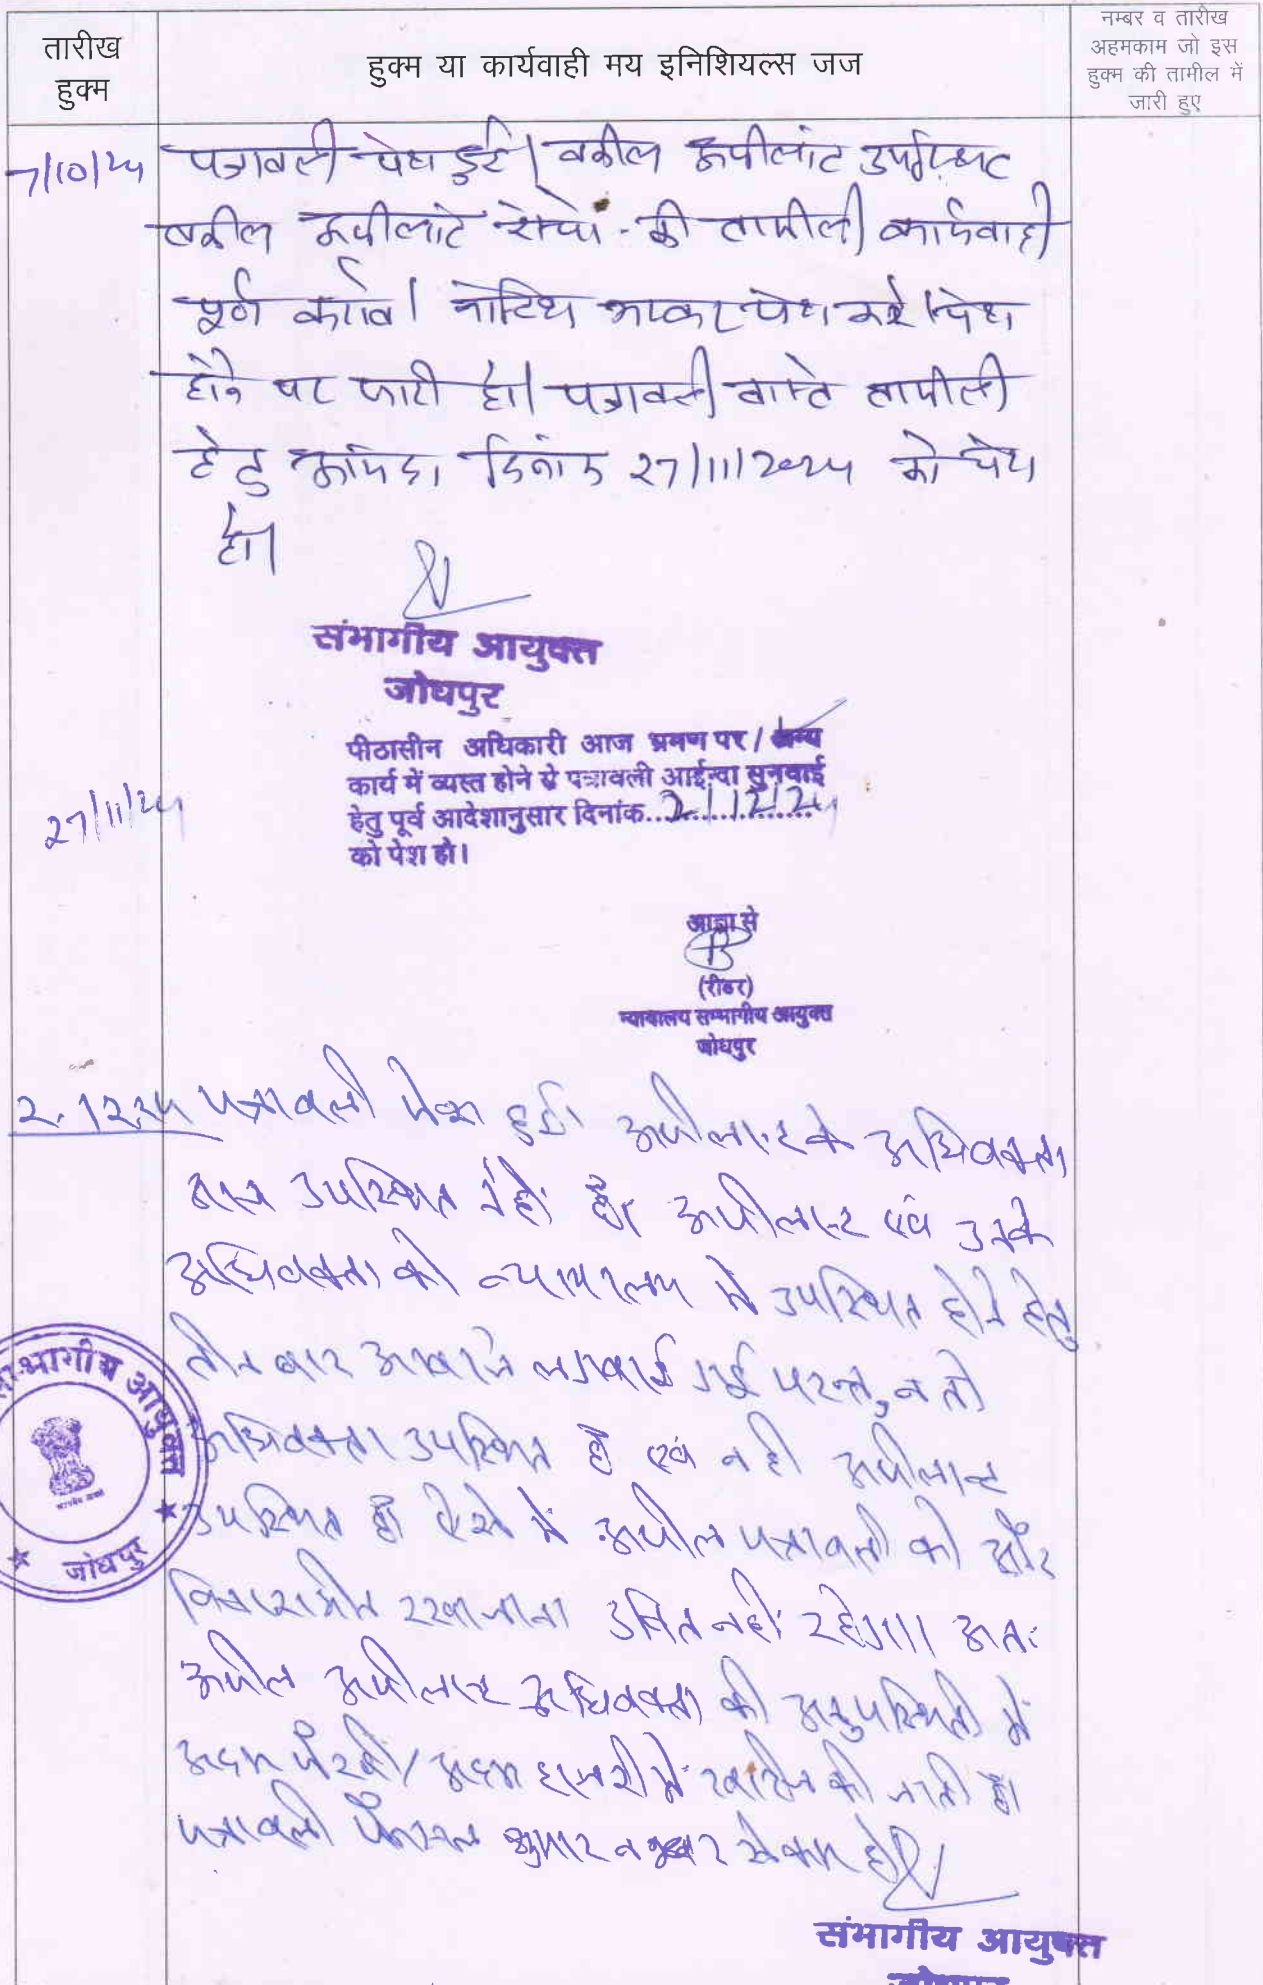 तारीख
हुक्म
हुक्म या कार्यवाही मय इनिशियल्स जज
नम्बर व तारीख
अहमकाम जो इस
हुक्म की तामील में
जारी हुए
7/10/24 पत्रावली पेश हुई। वकील अपीलांट उपस्थित
वकील अपीलांट शेष की तामीली कार्यवाही
पूर्ण करावे। नोटिस भरकर पेश करे। पेश
होने पर जारी हो। पत्रावली वास्ते तामीली
हेतु आईन्दा दिनांक 27/11/2024 को पेश
हो।
संभागीय आयुक्त
जोधपुर
27/11/24
पीठासीन अधिकारी आज भ्रमण पर / अन्य
कार्य में व्यस्त होने से पत्रावली आईन्दा सुनवाई
हेतु पूर्व आदेशानुसार दिनांक...2/12/24
को पेश हो।
आज्ञा से
(रीडर)
न्यायालय सम्भागीय आयुक्त
जोधपुर
2.12.24 पत्रावली पेश हुई। अपीलान्ट के अधिवक्ता
आज उपस्थित नहीं है। अपीलान्ट एवं उनके
अधिवक्ता को न्यायालय में उपस्थित होने हेतु
तीन बार आवाजे लगवाई गई परन्तु न तो
अधिवक्ता उपस्थित है एवं न ही अपीलान्ट
उपस्थित है। ऐसे में अपील पत्रावली को और
विचाराधीन रखा जाना उचित नहीं रहेगा। अतः
अपील अपीलान्ट अधिवक्ता की अनुपस्थिती में
अदम पैरवी/अदम हाजरी में खारीज की जाती है।
पत्रावली फैसल शुमार नम्बर से कम हो।
सम्भागीय आयुक्त
जोधपुर
संभागीय आयुक्त
जोधपुर